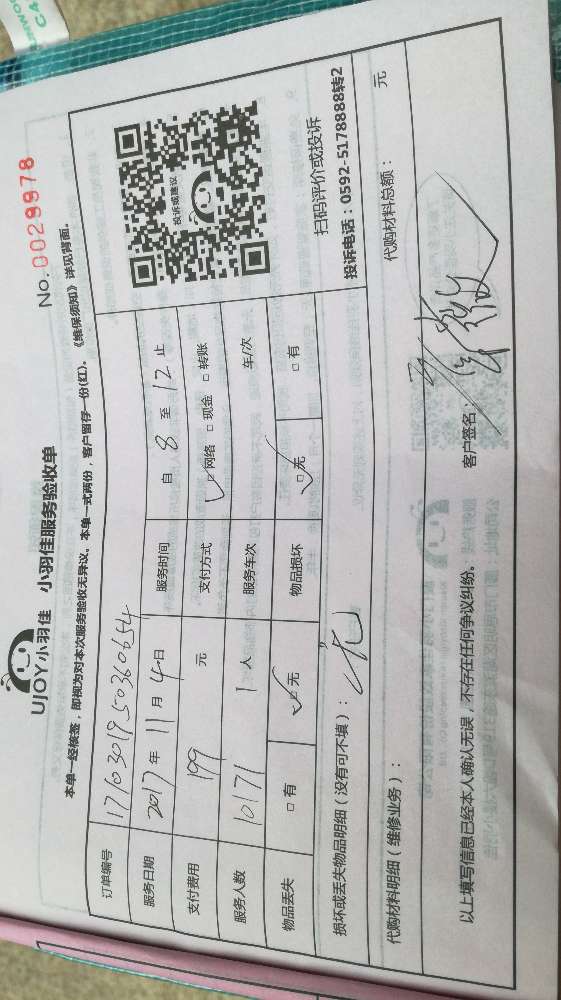 UJOY小羽佳 小羽佳服务验收单
No. 0029978
本单一经核签，即视为对本次服务验收无异议。本单一式两份，客户留存一份(红)。《维保须知》详见背面。
订单编号 1710301950360654
服务日期 2017年 11月 4日 服务时间 自 8 至 12 止
支付费用 199 元 支付方式 ☑网络 □现金 □转账
服务人数 10171 1人 服务车次 车/次
物品丢失 □有 ☑无 物品损坏 ☑无 □有
投诉或建议
扫码评价或投诉
投诉电话：0592-5178888转2
损坏或丢失物品明细（没有可不填）： 无
代购材料明细（维修业务）： 代购材料总额： 元
以上填写信息已经本人确认无误，不存在任何争议纠纷。 客户签名：